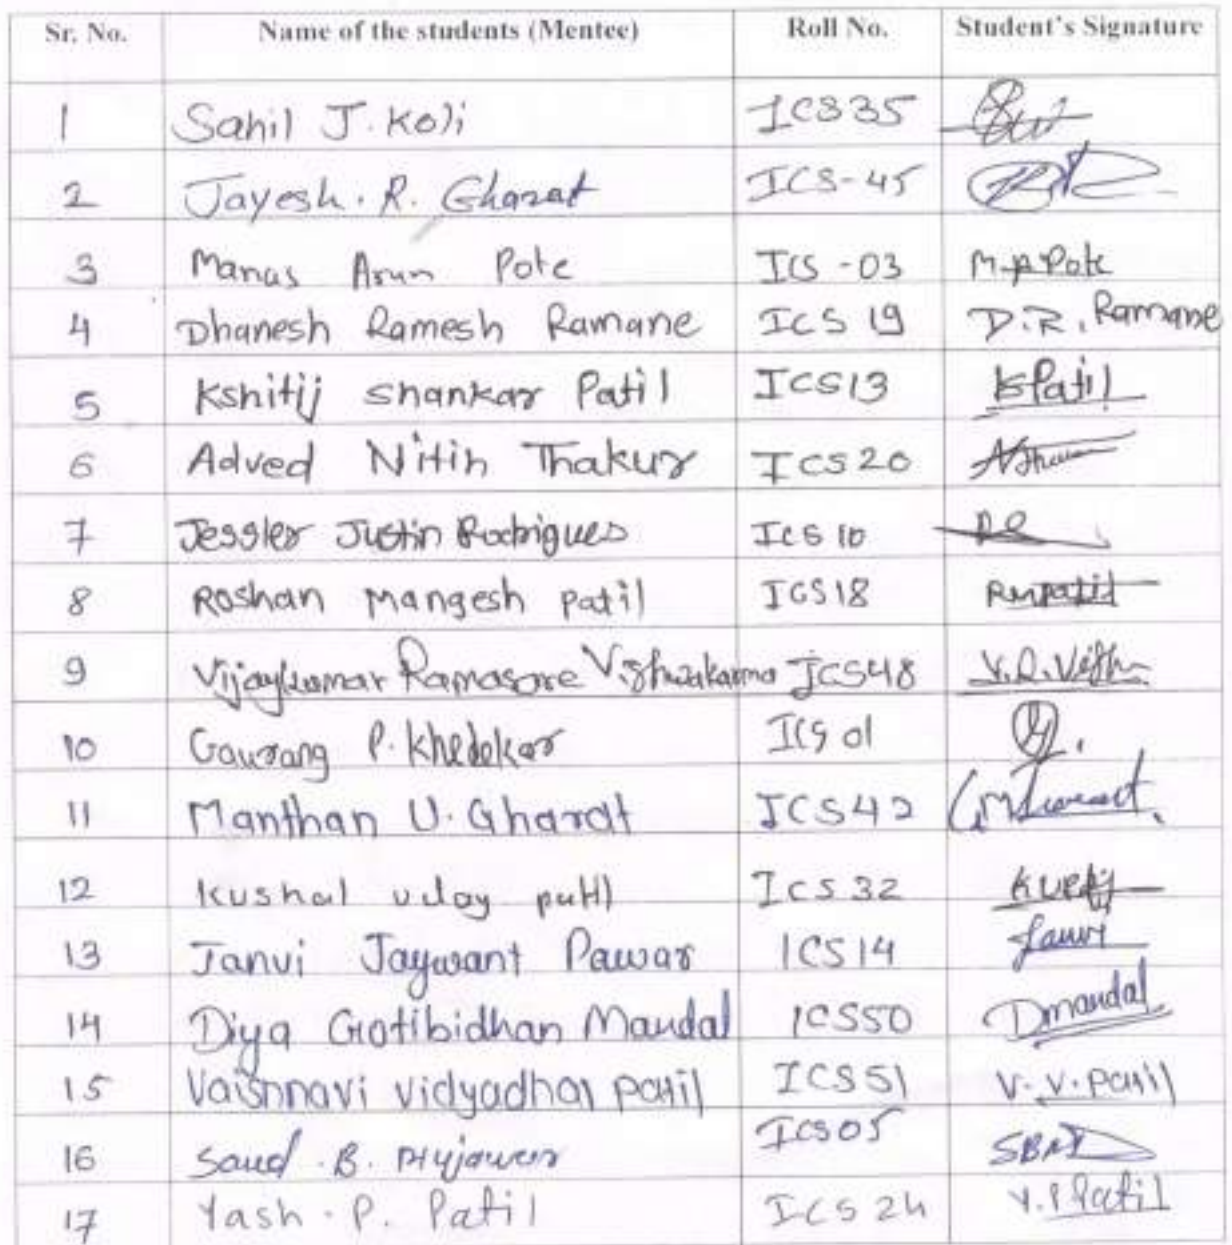 Sr. No. Name of the students (Mentee) Roll No. Student's Signature
1 Sahil J. Koli ICS35
2 Jayesh. R. Gharat ICS-45
3 Manas Arun Pote ICS -03 M.A Pote
4 Dhanesh Ramesh Ramane ICS 19 D.R. Ramane
5 Kshitij Shankar Patil ICS13 KSPatil
6 Adved Nitin Thakur ICS20
7 Jessler Justin Rodrigues ICS 10
8 Roshan Mangesh Patil ICS18 RMPatil
9 Vijaykumar Ramasare Vishwakarma ICS48 V.R.Vish
10 Gaurang P. Khedekar ICS 01
11 Manthan U. Gharat ICS42
12 Kushal Uday patil ICS 32
13 Janvi Jaywant Pawar ICS14 Janvi
14 Diya Gotibidhan Mandal ICS50 Dmandal
15 Vaishnavi Vidyadhar Patil ICS51 V. V. Patil
16 Saud . B. ICS05
17 Yash . P. Patil ICS 24 Y.P Patil